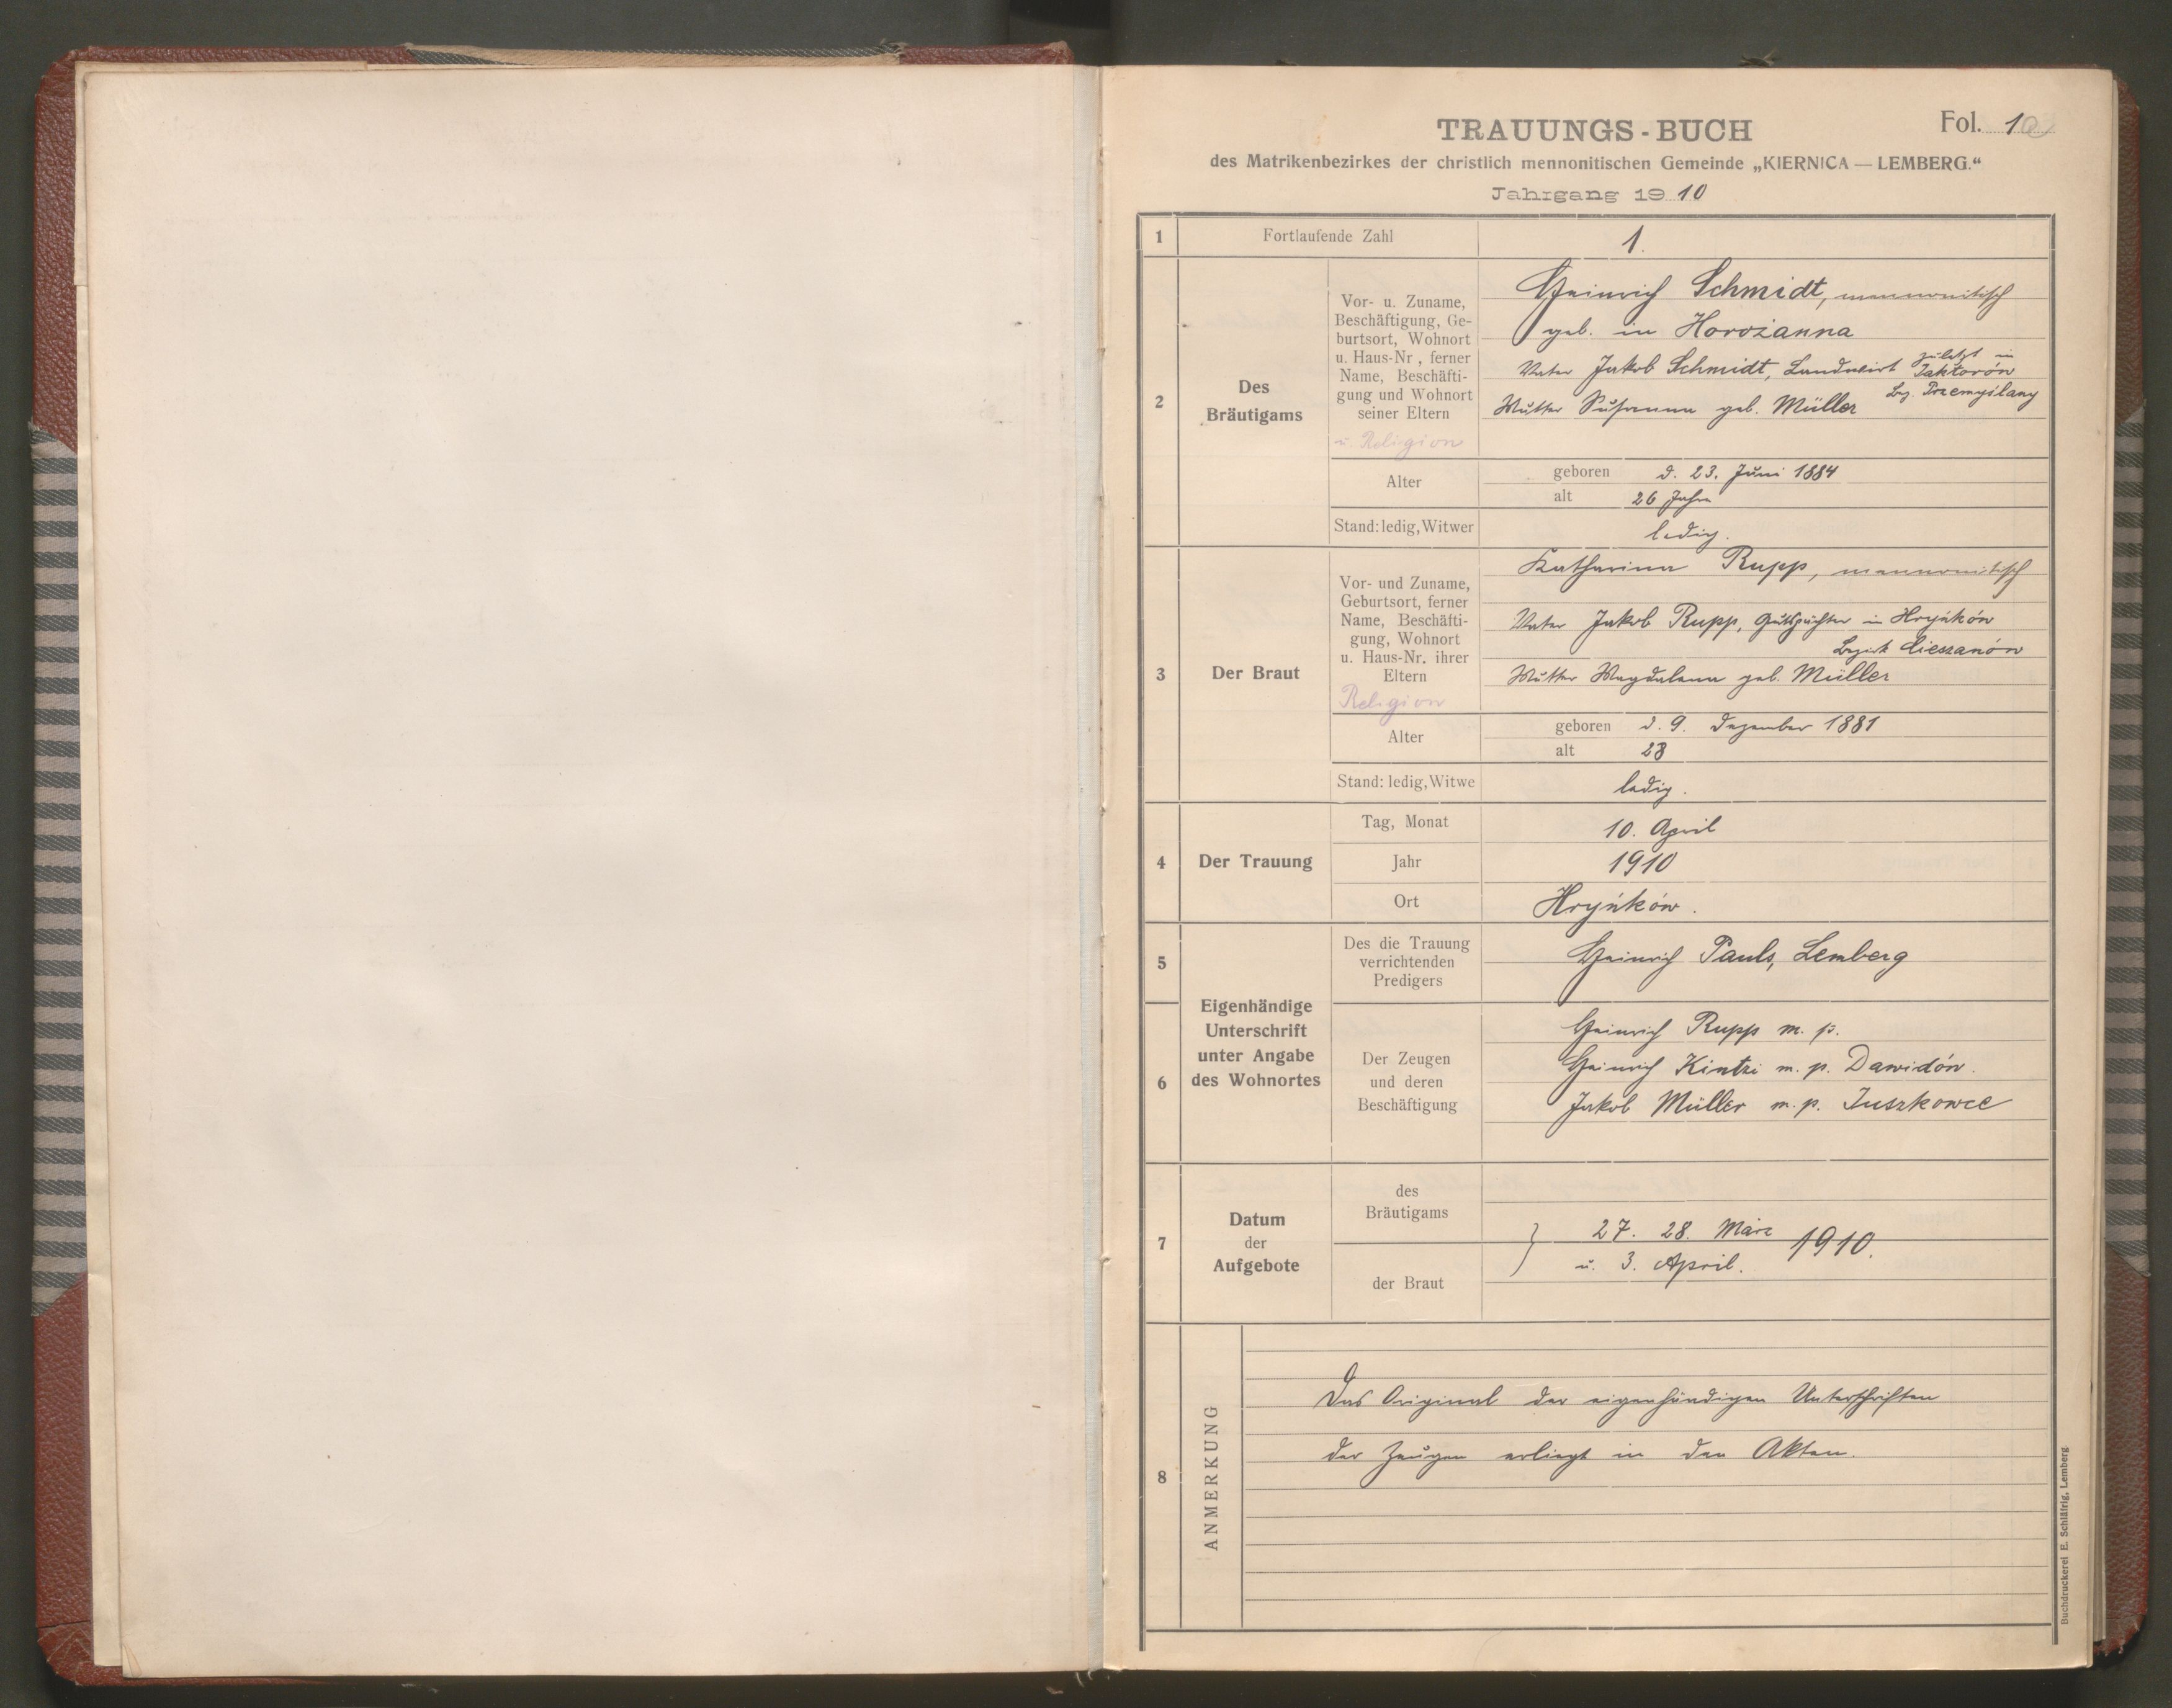 TRAUUNGS-BUCH
Fol. 1
des Matrikenbezirkes der christlich mennonitischen Gemeinde „KIERNICA — LEMBERG."
Jahrgang 1910
1
Fortlaufende Zahl
1.
2
Des
Bräutigams
Vor- u. Zuname,
Beschäftigung, Ge-
burtsort, Wohnort
u. Haus-Nr, ferner
Name, Beschäfti-
gung und Wohnort
seiner Eltern
u. Religion
Heinrich Schmidt, mennonitisch
geb. in Horożanna
Vater Jakob Schmidt, Landwirt zuletzt in
Taktorów
Bez. Przemyślany
Mutter Susanna geb. Müller
Alter
geboren d. 23. Juni 1884
alt 26 Jahre
Stand: ledig, Witwer
ledig.
3
Der Braut
Vor- und Zuname,
Geburtsort, ferner
Name, Beschäfti-
gung, Wohnort
u. Haus-Nr. ihrer
Eltern
Religion
Katharina Rupp, mennonitisch
Vater Jakob Rupp, Gutspächter in Hryńków
Bezirk Cieszanów
Mutter Magdalena geb. Müller
Alter
geboren d. 9. Dezember 1881
alt 28
Stand: ledig, Witwe
ledig.
4
Der Trauung
Tag, Monat
10. April
Jahr
1910
Ort
Hryńków.
5
Eigenhändige
Unterschrift
unter Angabe
des Wohnortes
Des die Trauung
verrichtenden
Predigers
Heinrich Pauls, Lemberg
6
Der Zeugen
und deren
Beschäftigung
Heinrich Rupp m. p.
Heinrich Kintzi m. p. Dawidów.
Jakob Müller m. p. Juszkowce
7
Datum
der
Aufgebote
des
Bräutigams
der Braut
27. 28. März
u. 3. April. 1910.
8
ANMERKUNG
Das Original der eigenhändigen Unterschriften
der Zeugen erliegt in den Akten.
Buchdruckerei E. Schläfrig, Lemberg.